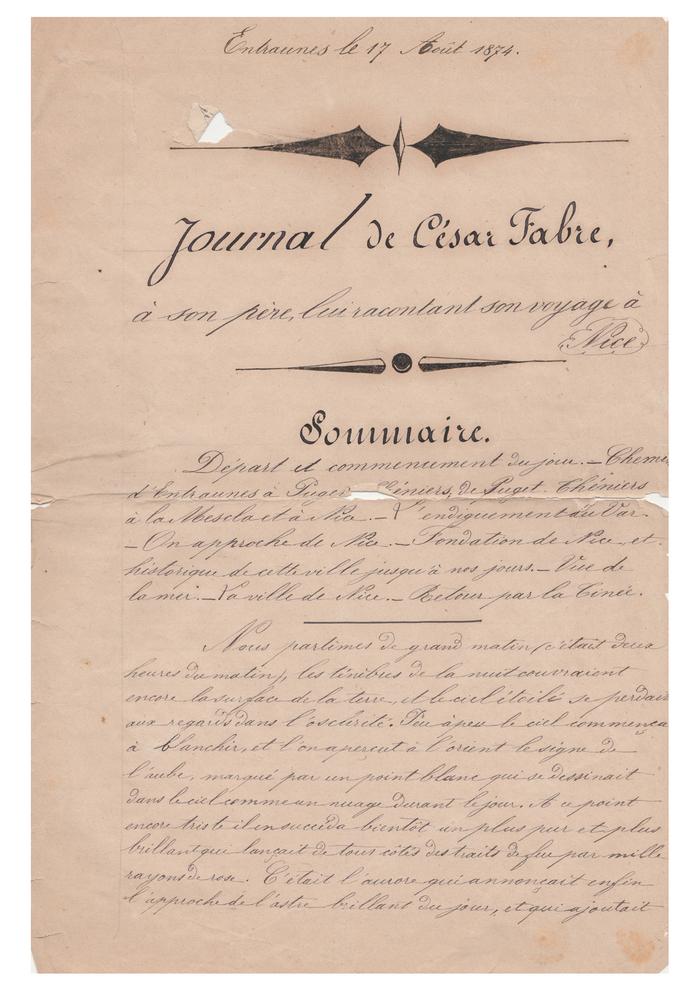 Entraunes le 17 Août 1874.
Journal de César Fabre,
à son père, lui racontant son voyage à
Nice
Sommaire.
Départ et commencement du jour. – Chemin
d'Entraunes à Puget Théniers, de Puget Théniers
à la Mescla et à Nice. – L'endiguement du Var.
– On approche de Nice. – Fondation de Nice, et
historique de cette ville jusqu'à nos jours. – Vue de
la mer. – La ville de Nice. – Retour par la Tinée.
Nous partîmes de grand matin (c'était deux
heures du matin), les ténèbres de la nuit couvraient
encore la surface de la terre, et le ciel étoilé se perdait
aux regards dans l'oscurité. Peu à peu le ciel commença
à blanchir, et l'on aperçut à l'orient le signe de
l'aube, marqué par un point blanc qui se dessinait
dans le ciel comme un nuage durant le jour. A ce point
encore triste il en succéda bientôt un plus pur et plus
brillant qui lançait de tous côtés des traits de feu par mille
rayons de rose. C'était l'aurore qui annonçait enfin
l'approche de l'astre brillant du jour, et qui ajoutait